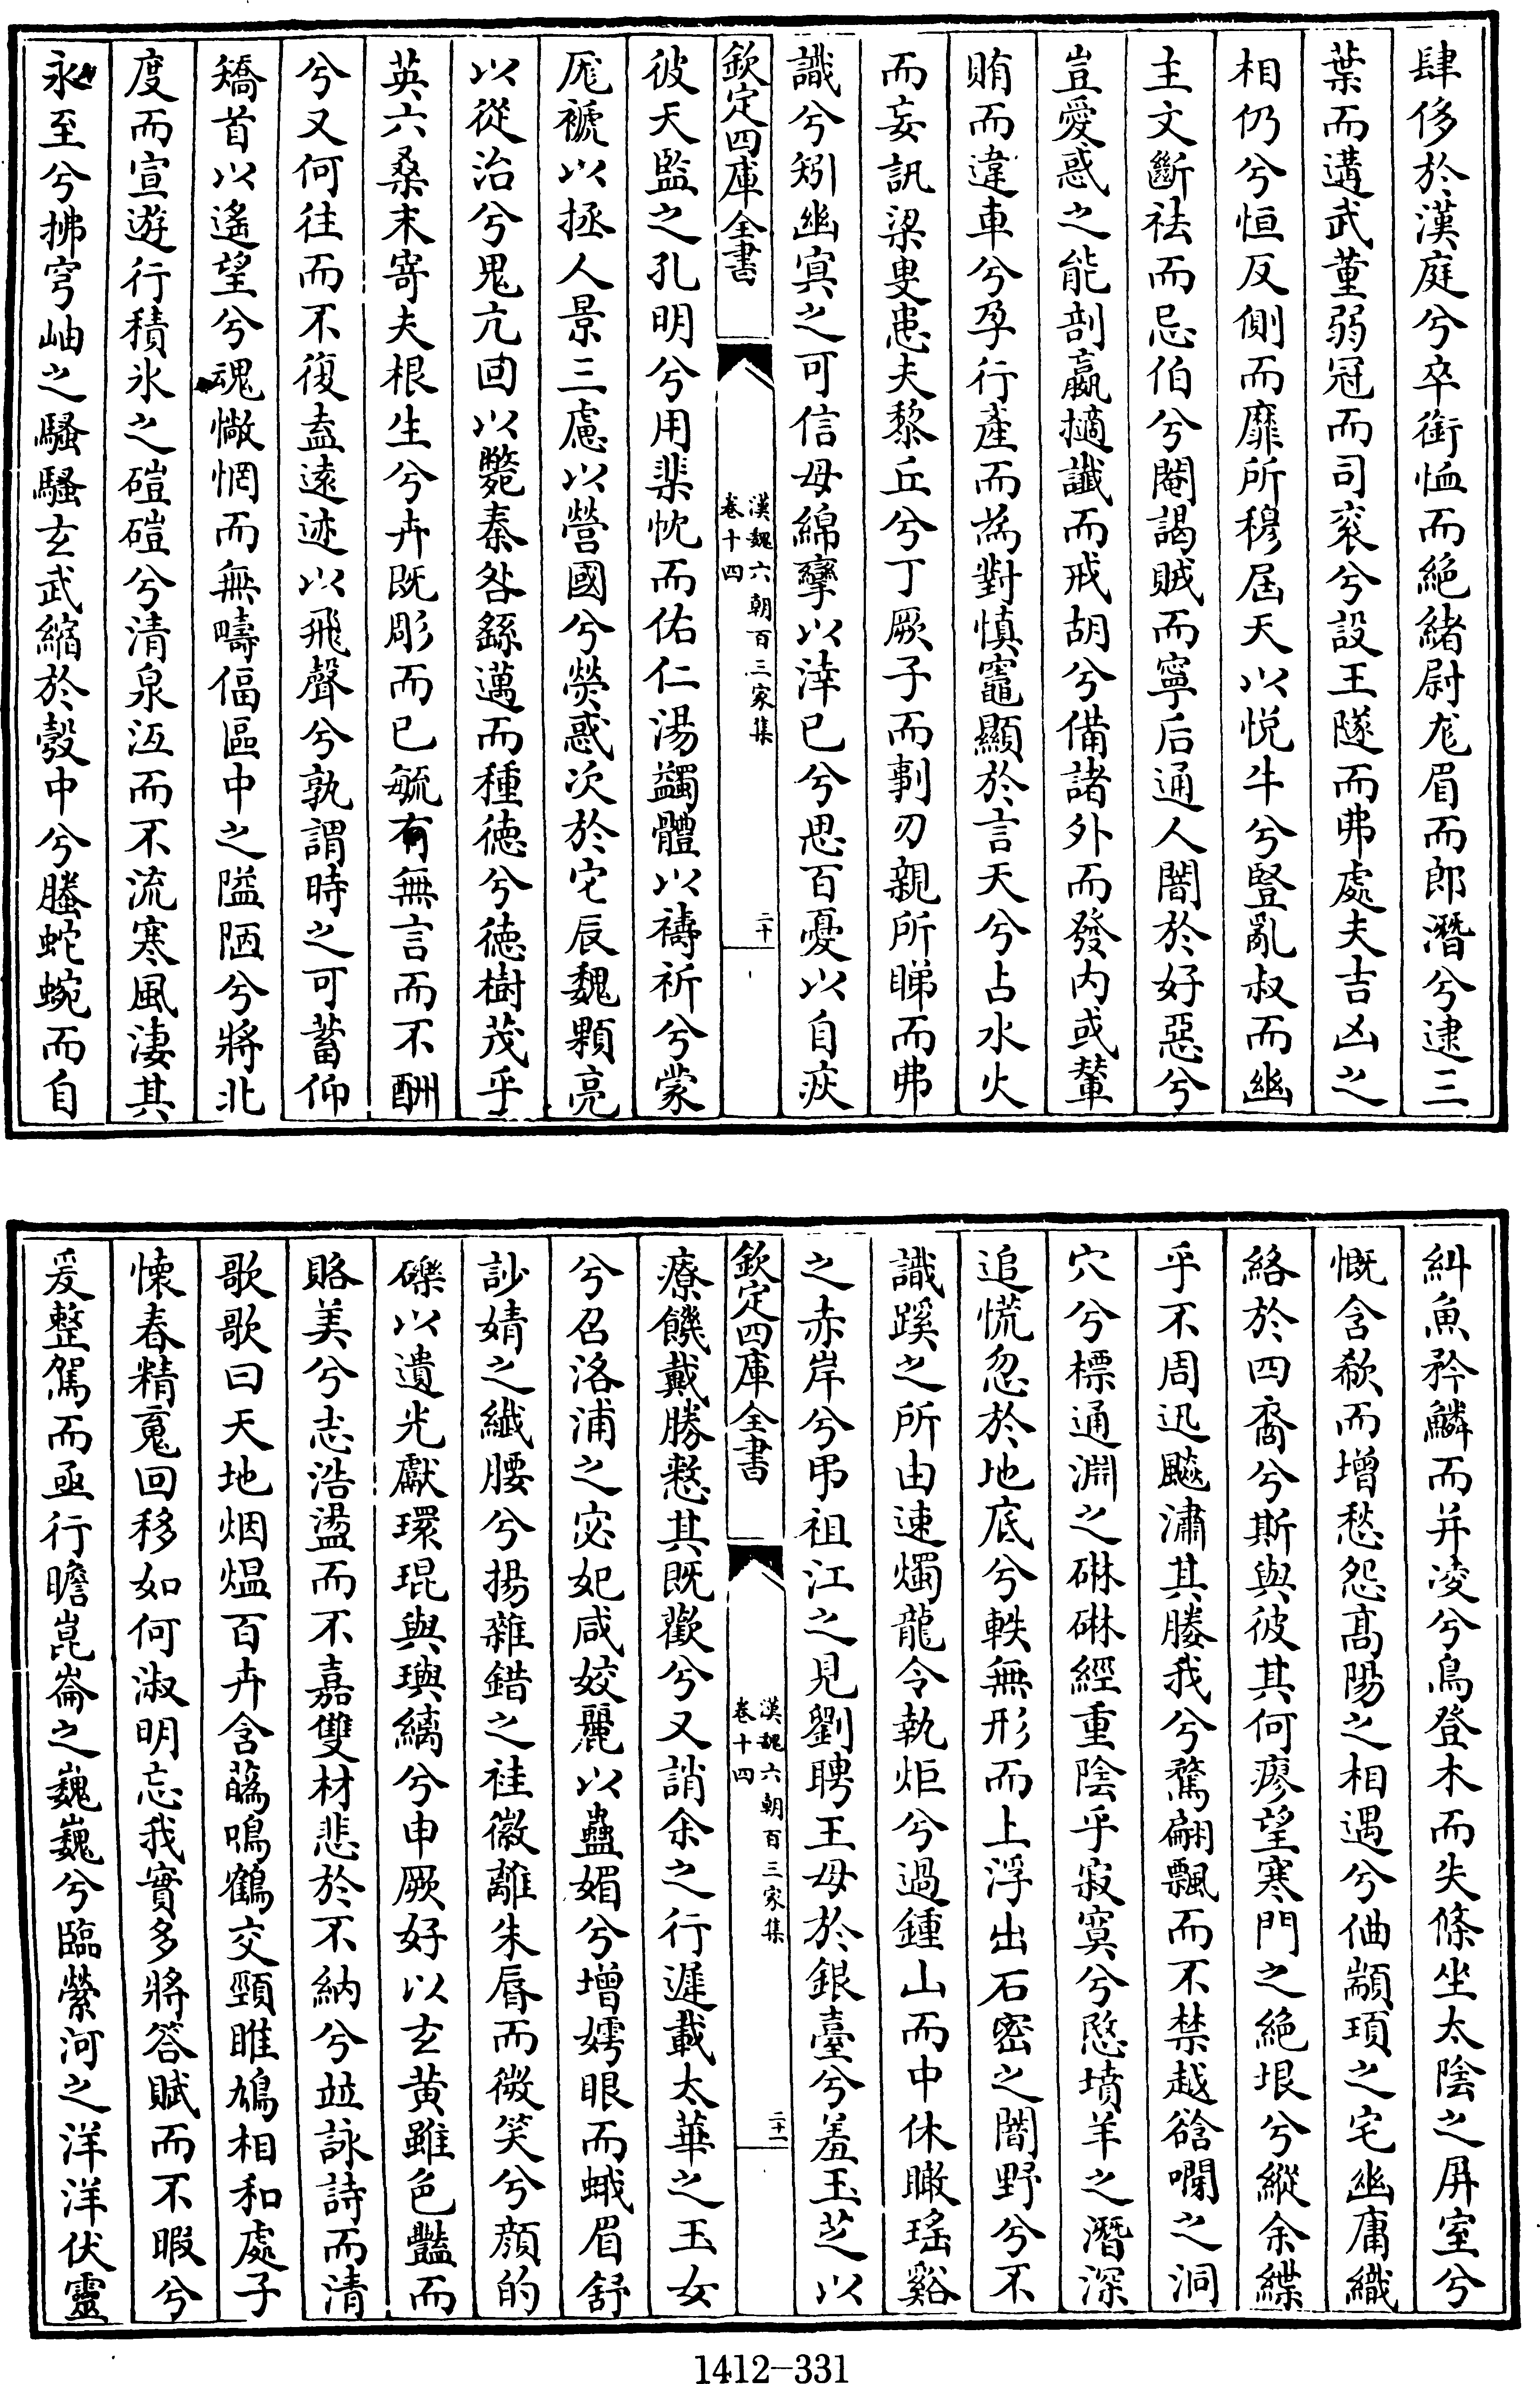 肆侈於漢庭兮卒銜恤而絕緒尉尨眉而郎潛兮逮三
葉而遘武董弱冠而司衮兮設王隧而弗處夫吉凶之
相仍兮恒反側而靡所穆屆天以悅牛兮豎亂叔而幽
主文斷祛而忌伯兮閹謁賊而寧后通人闇於好惡兮
豈愛惑之能剖嬴擿讖而戒胡兮備諸外而發内或輦
賄而違車兮孕行產而為對慎竈顯於言天兮占水火
而妄訊梁叟患夫黎丘兮丁厥子而剚刃親所睇而弗
識兮矧幽冥之可信毋綿攣以涬已兮思百憂以自疢
欽定四庫全書
漢魏六朝百三家集
卷十四
二十
彼天監之孔明兮用棐忱而佑仁湯蠲體以禱祈兮蒙
厖禠以拯人景三慮以營國兮熒惑次於它辰魏顆亮
以從治兮鬼亢回以斃秦咎繇邁而種德兮德樹茂乎
英六桑末寄夫根生兮卉既彫而已毓有無言而不酬
兮又何往而不復盍遠迹以飛聲兮孰謂時之可蓄仰
矯首以遙望兮魂㦗惘而無疇偪區中之隘陋兮將北
度而宣遊行積氷之磑磑兮清泉沍而不流寒風淒其
永至兮拂穹岫之騷騷玄武縮於殼中兮螣蛇蜿而自
糾魚矜鱗而并凌兮鳥登木而失條坐太陰之屏室兮
慨含欷而增愁怨高陽之相遇兮㑋顓頊之宅幽庸織
絡於四裔兮斯與彼其何瘳望寒門之絕垠兮縱余緤
乎不周迅飈潚其媵我兮騖翩飄而不禁越谽㗿之洞
穴兮標通淵之碄碄經重陰乎寂寞兮愍墳羊之潛深
追慌忽於地底兮軼無形而上浮出石密之闇野兮不
識蹊之所由速燭龍令執炬兮過鍾山而中休瞰瑤谿
之赤岸兮弔祖江之見劉聘王母於銀臺兮羞玉芝以
欽定四庫全書
漢魏六朝百三家集
卷十四
二十一
療饑戴勝憖其既歡兮又誚余之行遲載太華之玉女
兮召洛浦之宓妃咸姣麗以蠱媚兮增嫮眼而蛾眉舒
訬婧之纖腰兮揚雜錯之袿徽離朱脣而微笑兮顔的
礫以遺光獻環琨與璵縭兮申厥好以玄黃雖色豔而
賂美兮志浩盪而不嘉雙材悲於不納兮並詠詩而清
歌歌曰天地烟熅百卉含蘤鳴鶴交頸雎鳩相和處子
懷春精䰟回移如何淑明忘我實多將答賦而不暇兮
爰整駕而亟行瞻崑崙之巍巍兮臨縈河之洋洋伏靈
1412-331